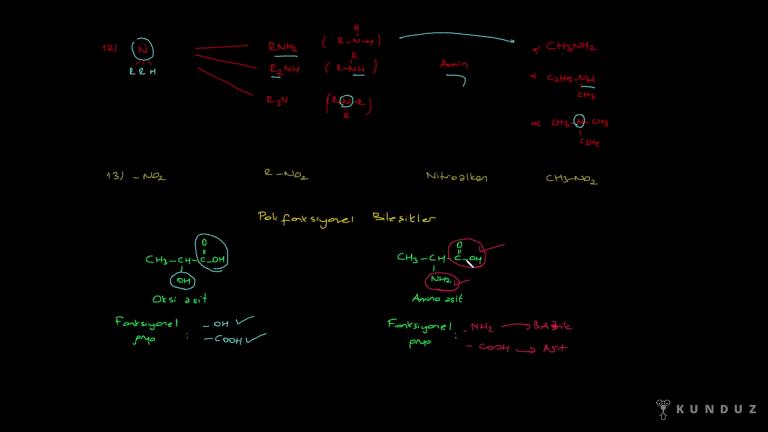 12) N
R R H
RNH2
( H
R-N-H )
Amin
α CH3NH2
R2NH
( R
R-NH )
α C2H5-NH
CH3
R3N
( R-N-R )
R
α CH3-N-CH3
C2H5
13) -NO2
R-NO2
Nitroalkan
CH3-NO2
Polifonksiyonel Bileşikler
O
CH3-CH-C-OH
OH
Oksi asit
Fonksiyonel
grup :
-OH
-COOH
O
CH3-CH-C-OH
NH2
Amino asit
Fonksiyonel
grup :
-NH2 → Bazik
-COOH → Asit
KUNDUZ